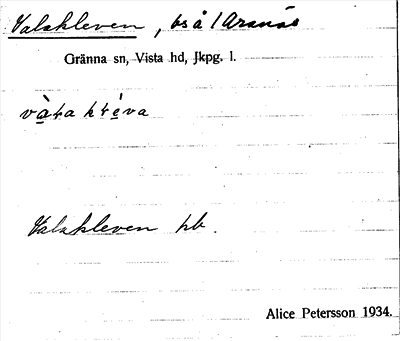 Valakleven, bs å / Aranäs
Gränna sn, Vista hd, Jkpg. l.
vàɫa kɫéva
Valakleven hb.
Alice Petersson 1934.